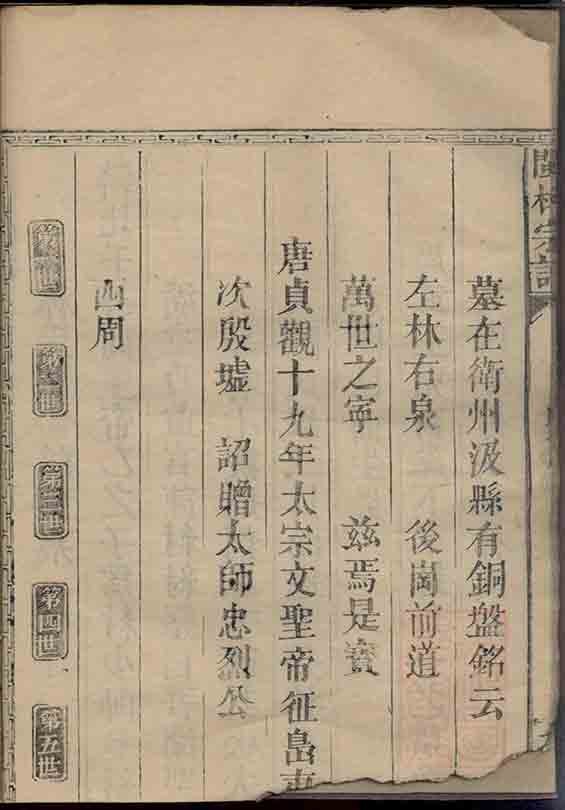 墓在衛州汲縣有銅盤銘云
左林右泉　後崗前道
萬世之寧　兹焉是寶
唐貞觀十九年太宗文聖帝征島東
次殷墟　詔贈太師忠烈公
四周
第三世
第四世
第五世